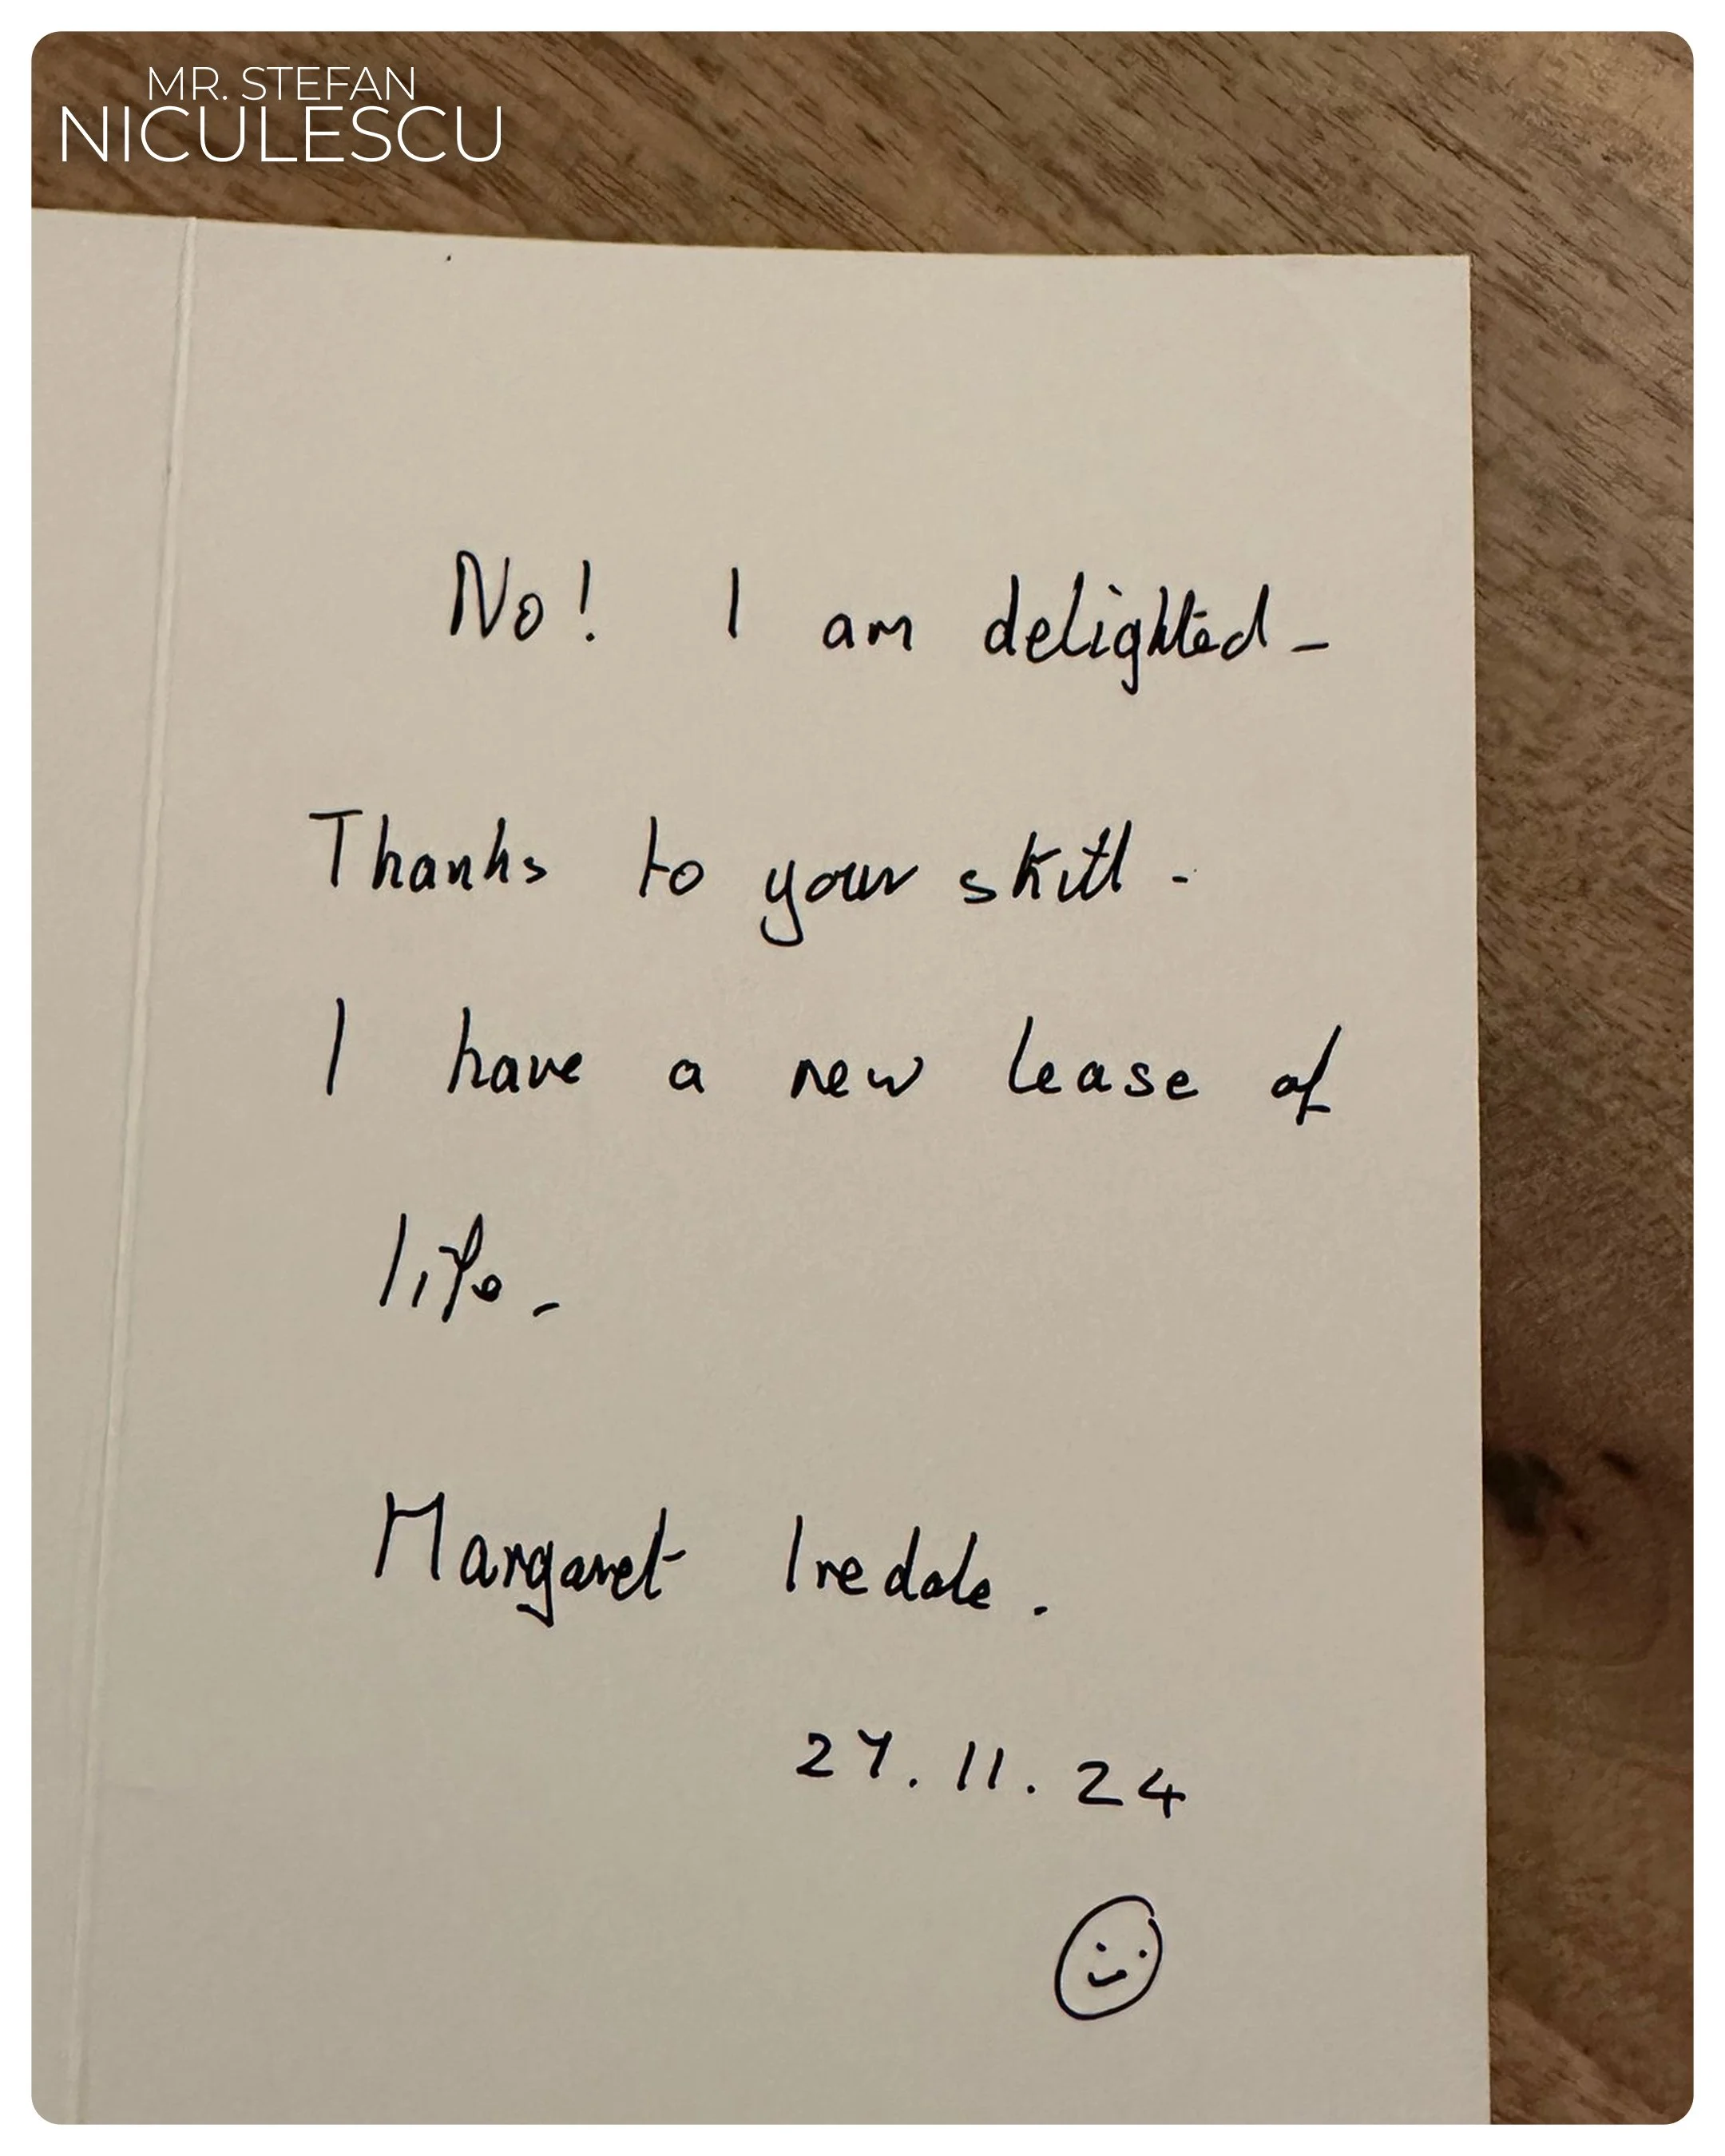 MR. STEFAN
NICULESCU
No! I am delighted -
Thanks to your skill -
I have a new lease of
life -
Margaret Iredale.
27.11.24